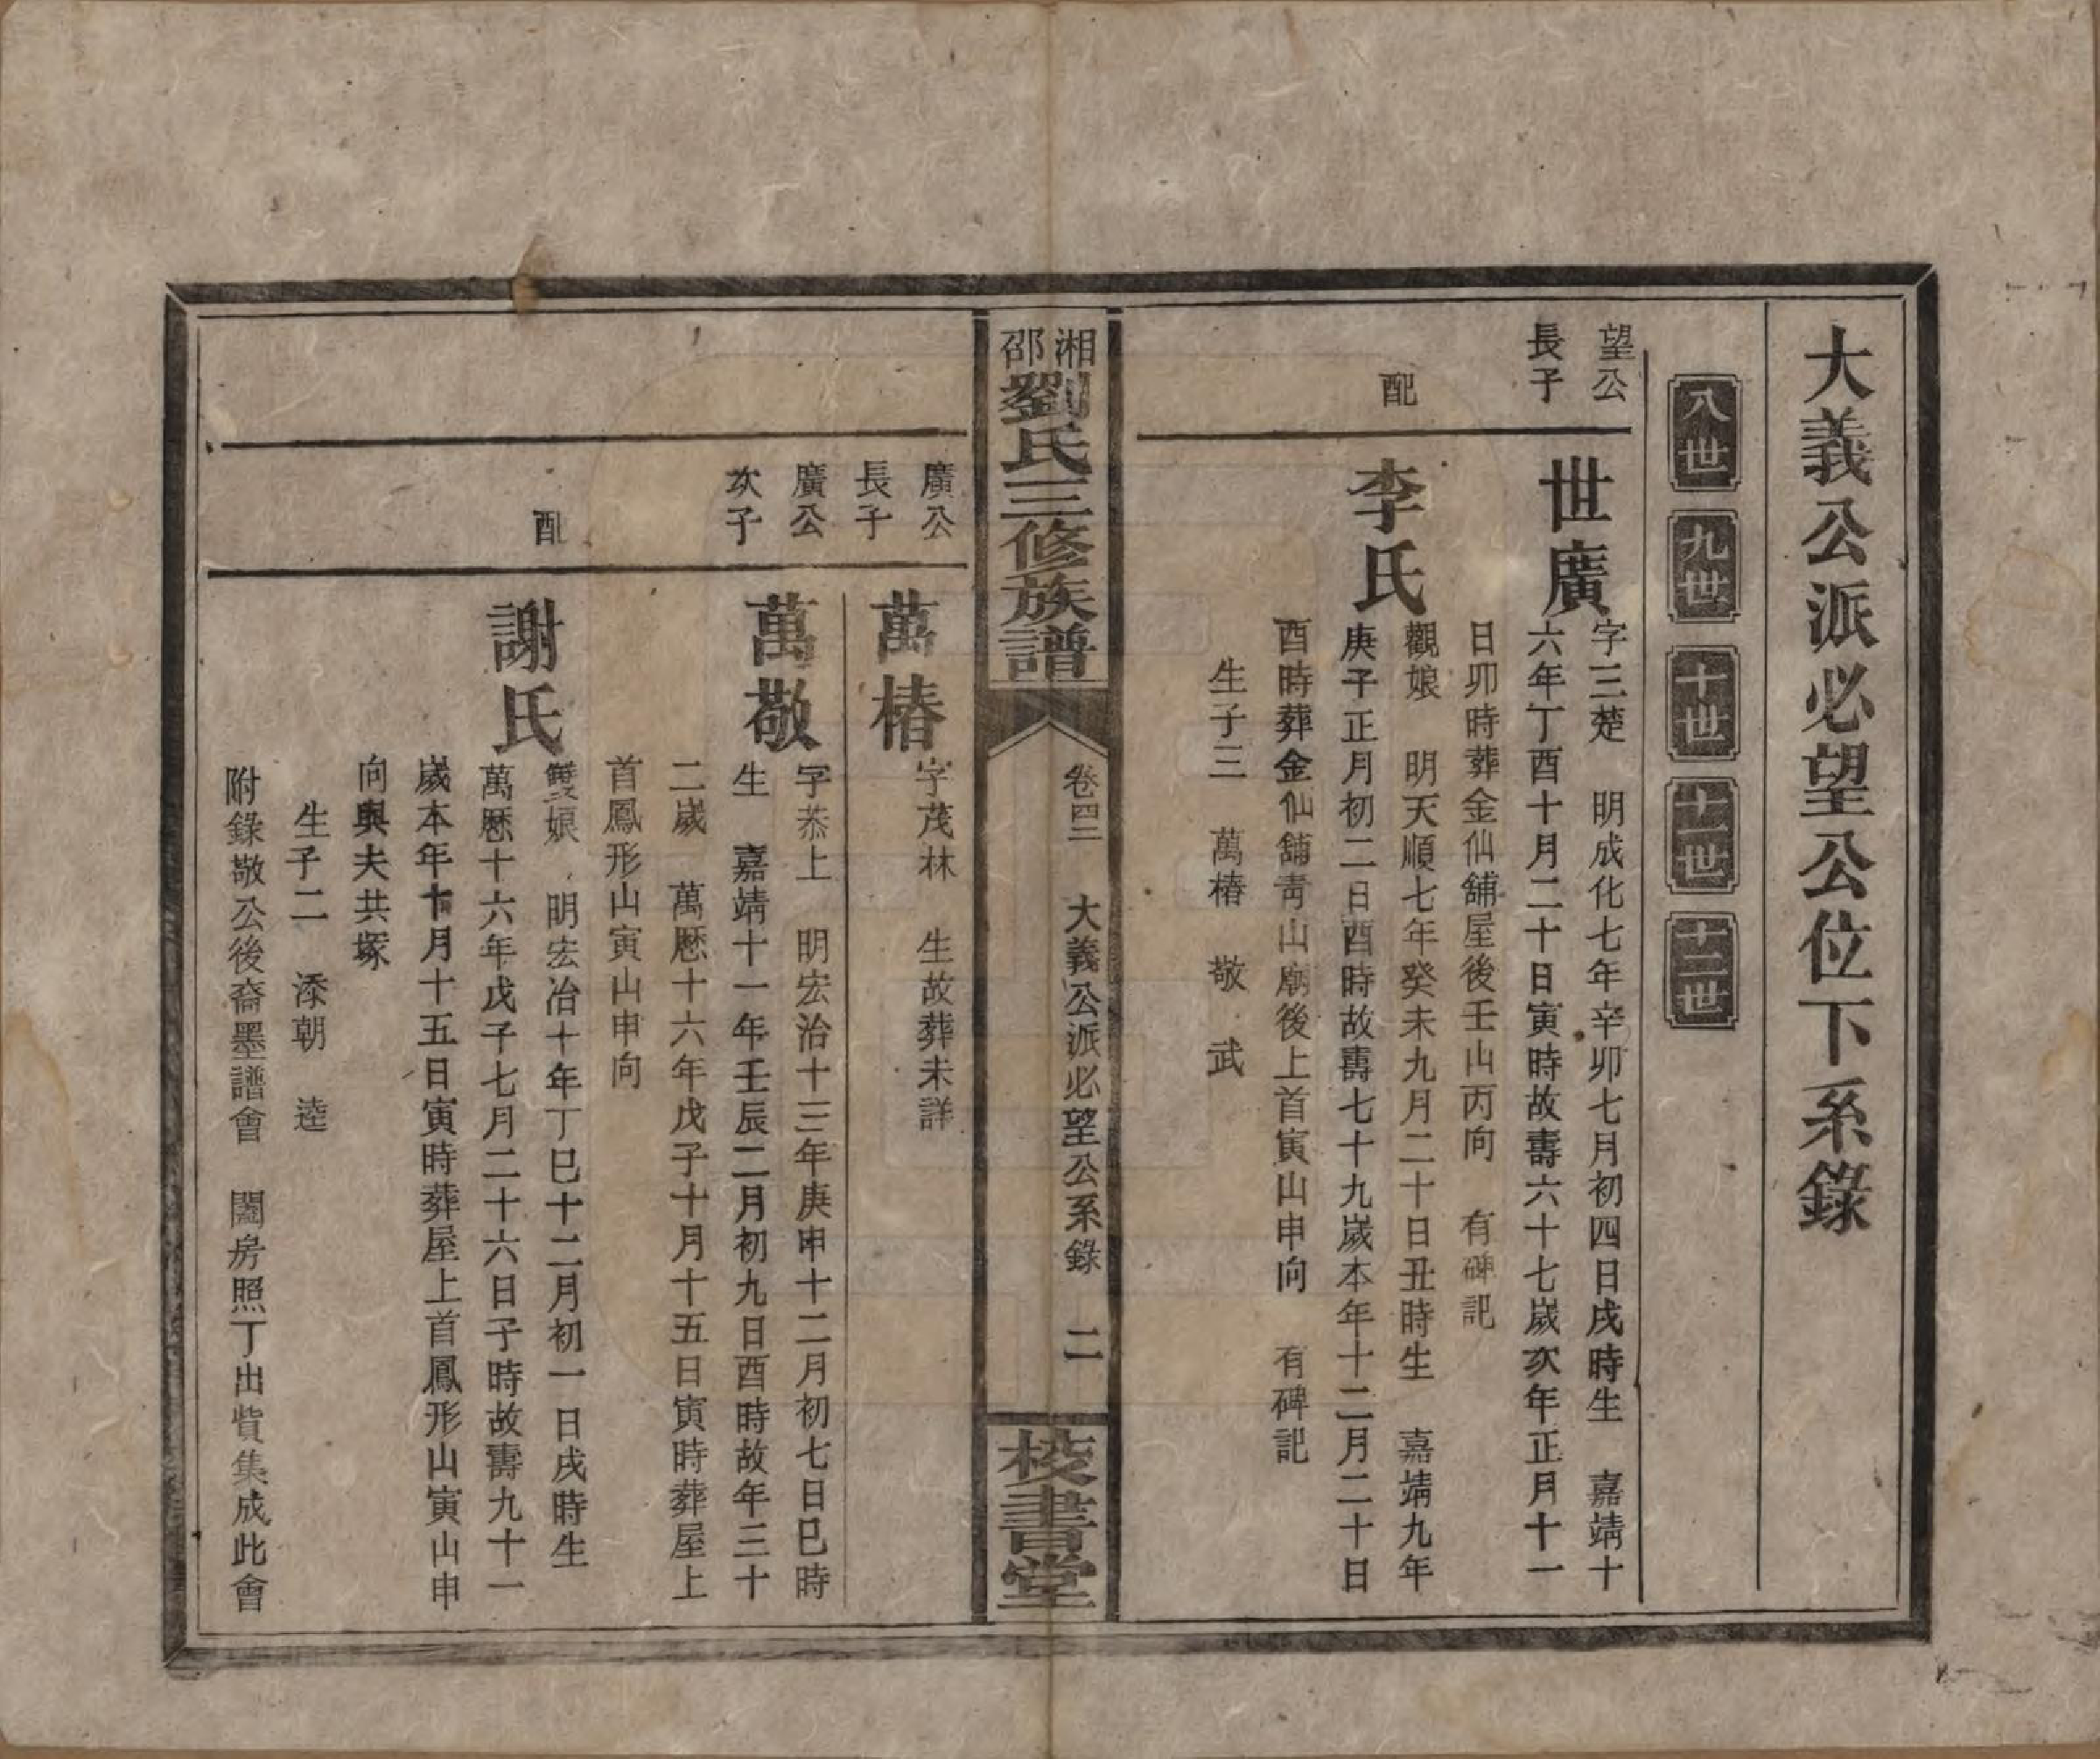 大義公派必望公位下系錄
八世
九世
十世
十一世
十二世
望公
長子
世廣
字三楚　明成化七年辛卯七月初四日戌時生　嘉靖十
六年丁酉十月二十日寅時故壽六十七歲次年正月十一
日卯時葬金仙舖屋後壬山丙向　有碑記
配
李氏
觀娘　明天順七年癸未九月二十日丑時生　嘉靖九年
庚子正月初二日酉時故壽七十九歲本年十二月二十日
酉時葬金仙舖青山廟後上首寅山申向　有碑記
生子三　萬椿　敬　武
湘邵劉氏三修族譜
卷四二　大義公派必望公系錄　二
校書堂
廣公
長子
萬椿
字茂林　生故葬未詳
廣公
次子
萬敬
字恭上　明宏治十三年庚申十二月初七日巳時
生　嘉靖十一年壬辰二月初九日酉時故年三十
二歲　萬曆十六年戊子十月十五日寅時葬屋上
首鳳形山寅山申向
配
謝氏
雙娘　明宏治十年丁巳十二月初一日戌時生
萬曆十六年戊子七月二十六日子時故壽九十一
歲本年十月十五日寅時葬屋上首鳳形山寅山申
向與夫共塚
生子二　添朝　逵
附錄敬公後裔墨譜會　闔房照丁出貲集成此會